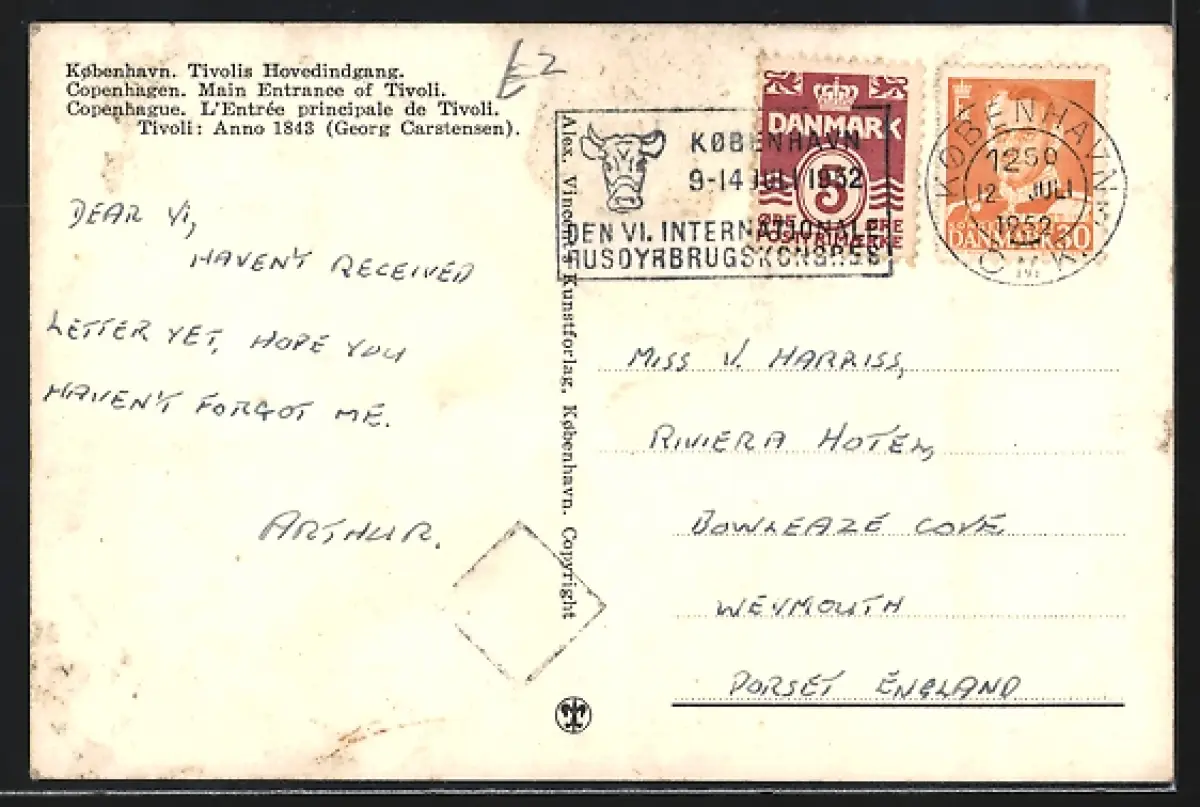 København. Tivolis Hovedindgang.
Copenhagen. Main Entrance of Tivoli.
Copenhague. L'Entrée principale de Tivoli.
Tivoli: Anno 1843 (Georg Carstensen).
£2
DEAR VI,
HAVEN'T RECEIVED
LETTER YET, HOPE YOU
HAVEN'T FORGOT ME.
ARTHUR.
Alex. Vincent's Kunstforlag, København. Copyright
KØBENHAVN
9-14 JULI 1952
DEN VI. INTERNATIONALE
HUSDYRBRUGSKONGRES
DANMARK
5
ØRE ØRE
POSTFRIMÆRKE
DANMARK 30
KØBENHAVN
1250
12 JULI
1952
OMK.
MISS V. HARRISS,
RIVIERA HOTEL,
BOWLEAZE COVE,
WEYMOUTH
DORSET ENGLAND